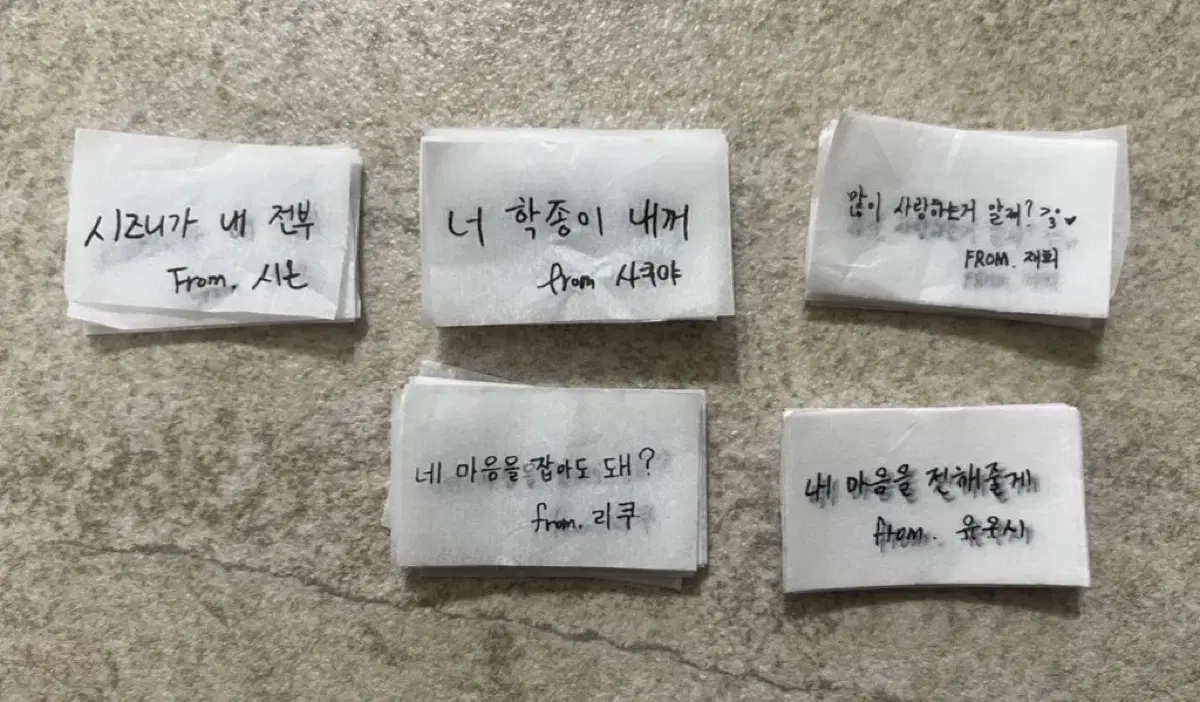 시즈니가 내 전부
From. 시온
너 학종이 내꺼
from 사쿠야
많이 사랑하는거 알제? >3·♥
FROM. 재희
네 마음을 잡아도 돼?
from. 리쿠
내 마음을 전해줄게
from. 유우시